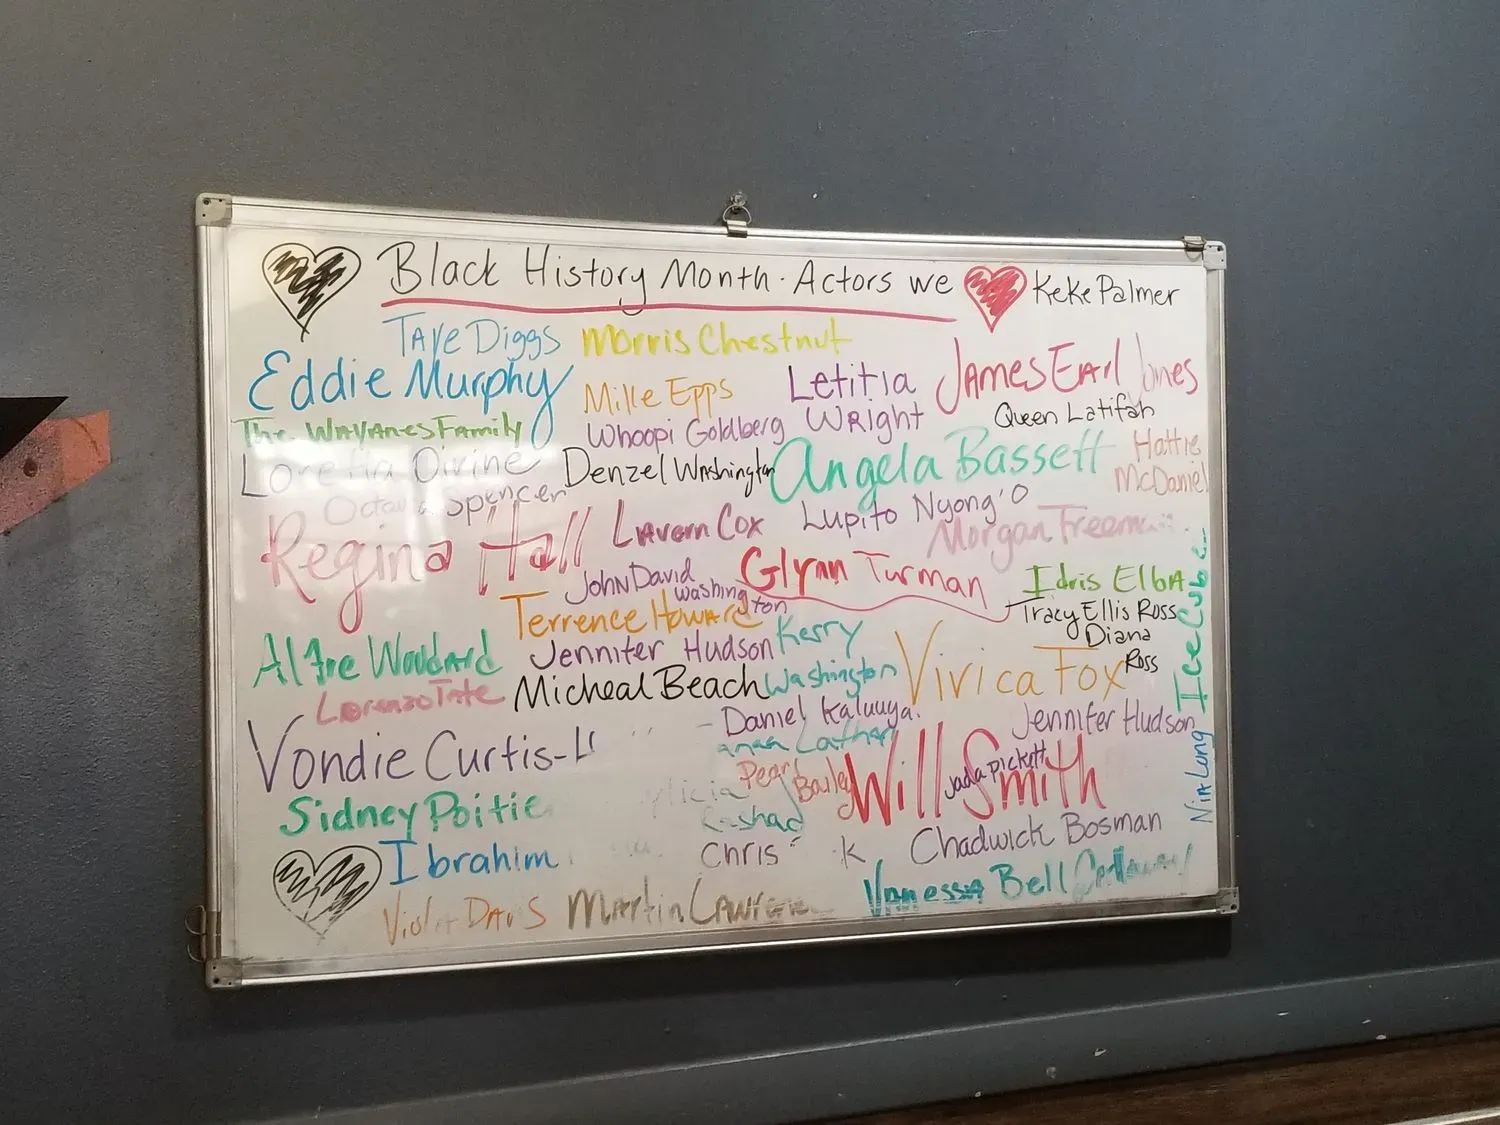 Black History Month · Actors we
KeKe Palmer
Taye Diggs
Morris Chestnut
Eddie Murphy
Mille Epps
Letitia
Wright
James Earl Jones
The Wayanes Family
Whoopi Goldberg
Queen Latifah
Loretta Divine
Denzel Washington
Angela Bassett
Hattie
McDaniel
Spencer
Lavern Cox
Lupito Nyong'o
Regina Hall
Morgan Freeman
John David
Washington
Glynn Turman
Idris Elba
Ice Cube
Terrence Howard
Tracy Ellis Ross
Diana
Ross
Alfre Woodard
Jennifer Hudson
Kerry
Washington
Vivica Fox
Lorenzo Tate
Micheal Beach
Daniel Kaluuya.
Jennifer Hudson
Vondie Curtis-
Lathan
Pearl
Bailey
Will Smith
jada pickett
Nia Long
Sidney Poitie
Rashad
Ibrahim
Chris
k
Chadwick Bosman
Viola Davis
Martin Lawrence
Vanessa Bell